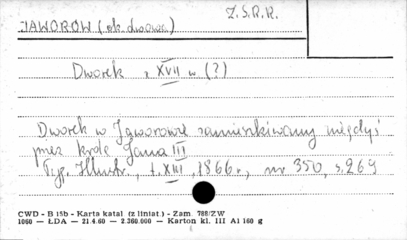 Z.S.R.R.
JAWORÓW (ok. Lwowa)
Dworek z XVII w (?)
Dworek w Jaworowie zamieszkiwany niegdyś
przez króla Jana III
Tyg. Illustr., t. XIII, 1866r., nr 350, s. 269
CWD - B 15b - Karta katal. (z liniat.) - Zam. 788/ZW
1060 — ŁDA — 21.4.60 — 2.360.000 — Karton kl. III A1 160 g